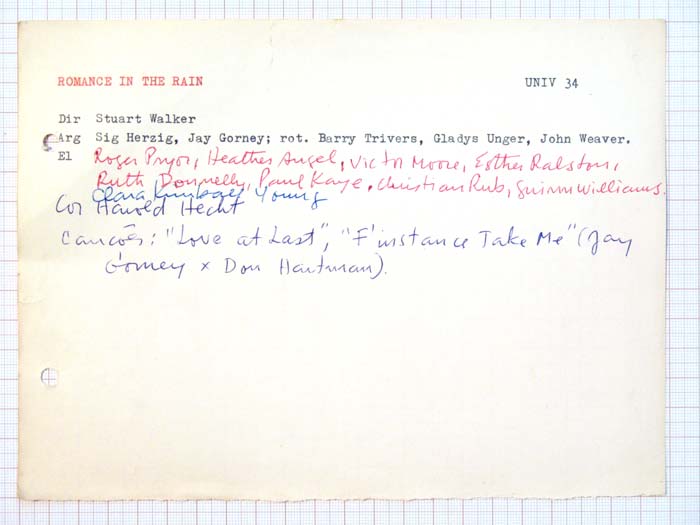 ROMANCE IN THE RAIN UNIV 34
Dir Stuart Walker
Arg Sig Herzig, Jay Gorney; rot. Barry Trivers, Gladys Unger, John Weaver.
El Roger Pryor, Heather Angel, Victor Moore, Esther Ralston,
Ruth Donnelly, Paul Kaye, Christian Rub, Guinn Williams.
Clara Kimball Young
Cor Harold Hecht
Canções: "Love at Last", "F'instance Take Me" (Jay
Gorney x Don Hartman).